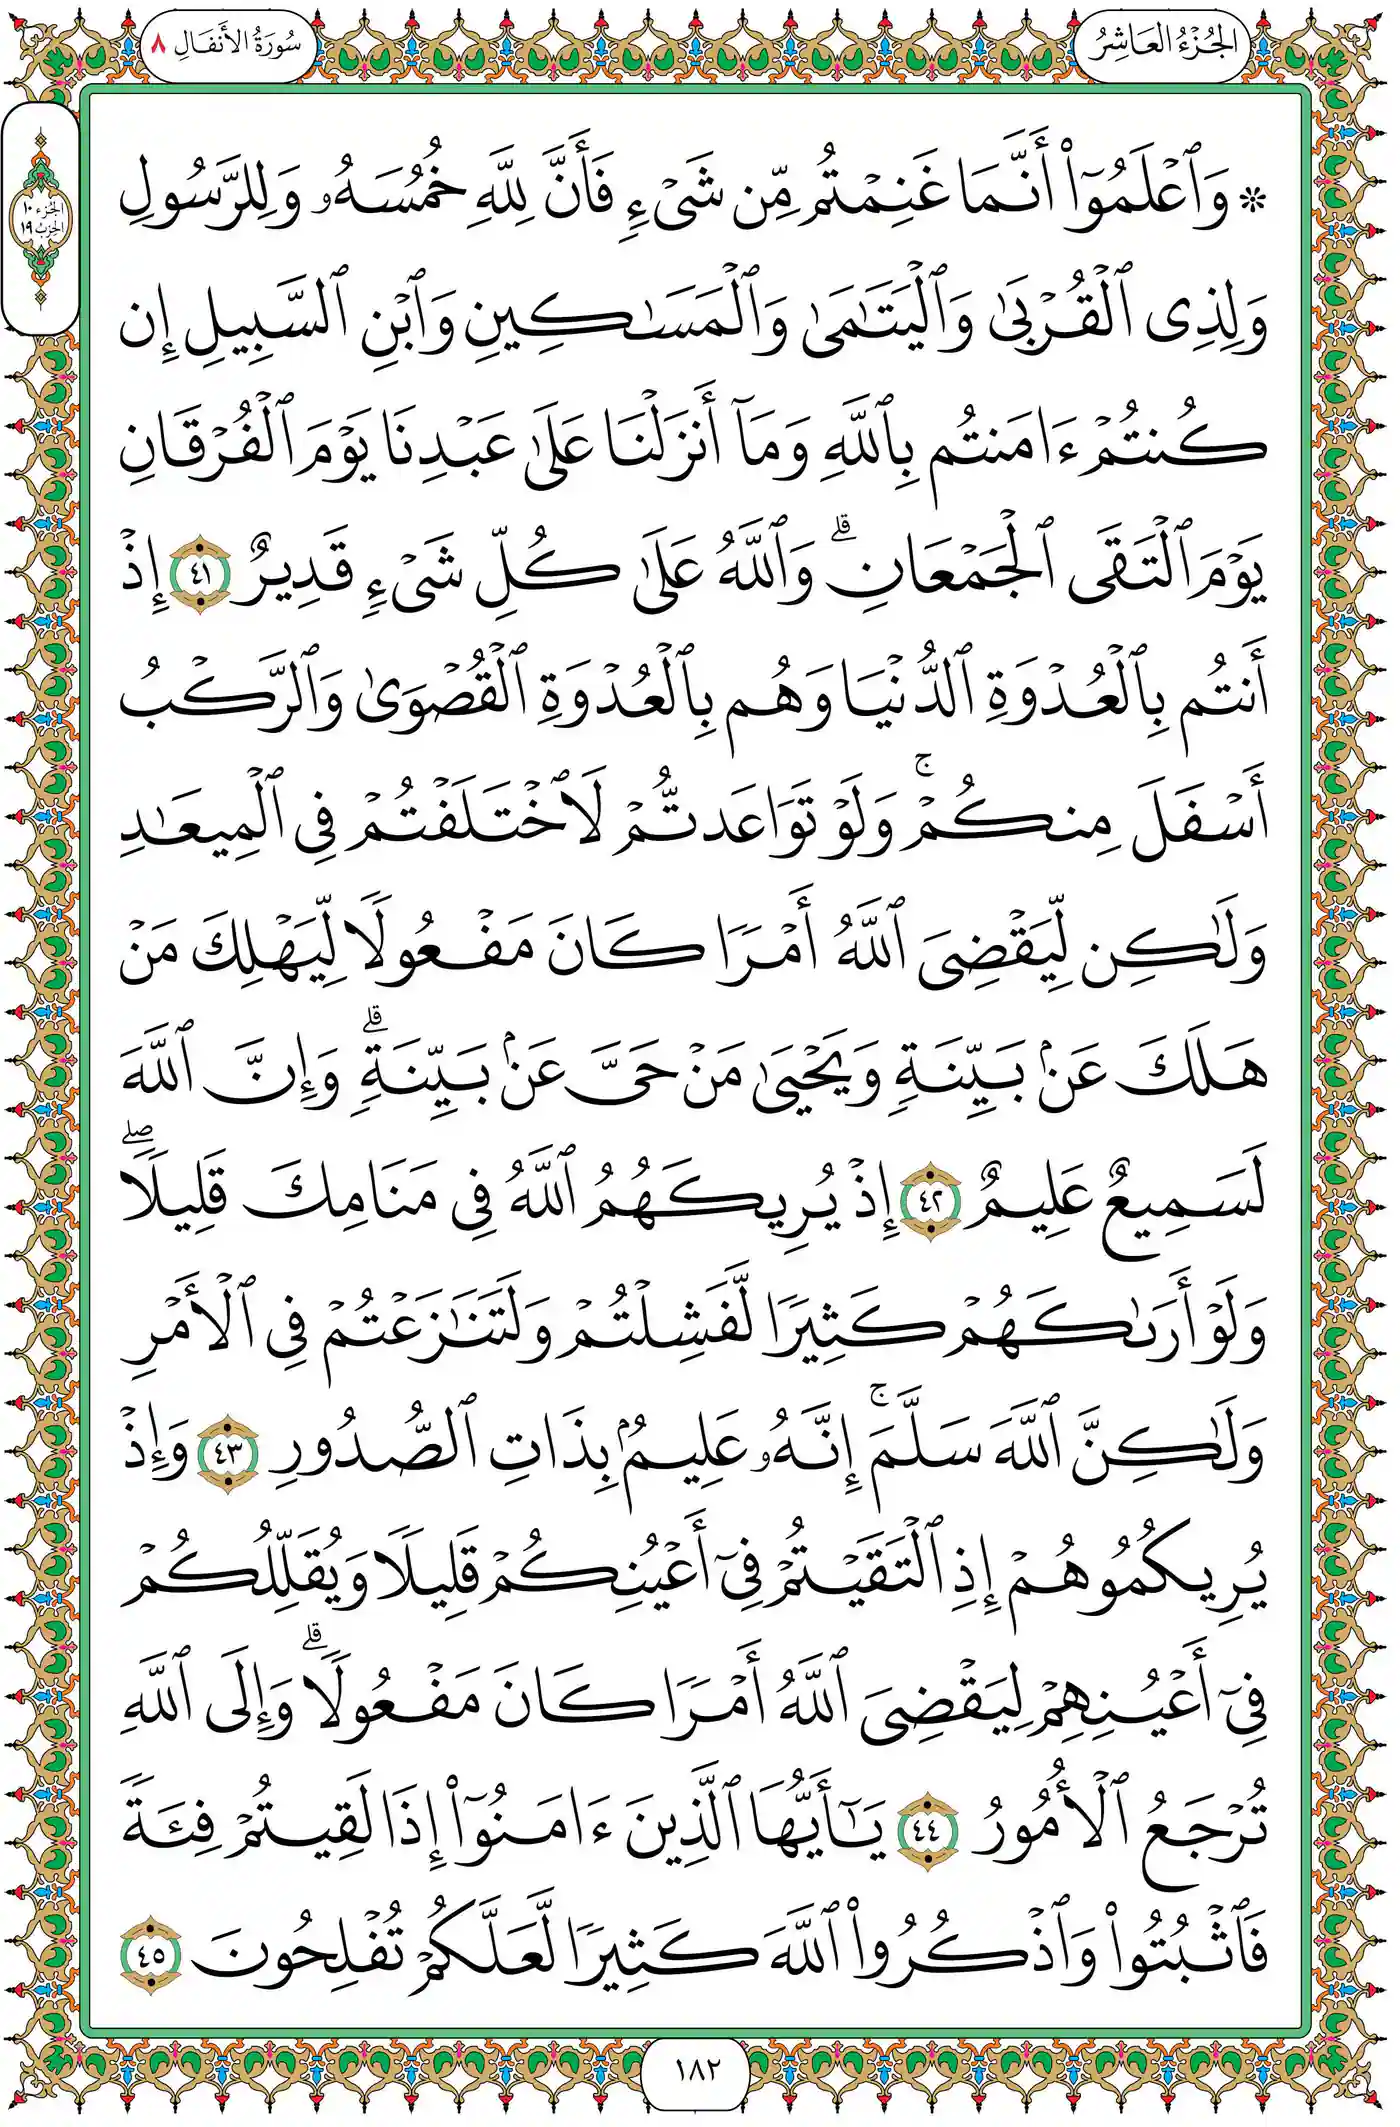 الجُزْءُ العَاشِرُ
سُورَةُ الأَنفَالِ ٨
الجزء ١٠
الحزب ١٩
۞ وَٱعۡلَمُوٓاْ أَنَّمَا غَنِمۡتُم مِّن شَىۡءٖ فَأَنَّ لِلَّهِ خُمُسَهُۥ وَلِلرَّسُولِ
وَلِذِى ٱلۡقُرۡبَىٰ وَٱلۡيَتَٰمَىٰ وَٱلۡمَسَٰكِينِ وَٱبۡنِ ٱلسَّبِيلِ إِن
كُنتُمۡ ءَامَنتُم بِٱللَّهِ وَمَآ أَنزَلۡنَا عَلَىٰ عَبۡدِنَا يَوۡمَ ٱلۡفُرۡقَانِ
يَوۡمَ ٱلۡتَقَى ٱلۡجَمۡعَانِۗ وَٱللَّهُ عَلَىٰ كُلِّ شَىۡءٖ قَدِيرٌ ٤١ إِذۡ
أَنتُم بِٱلۡعُدۡوَةِ ٱلدُّنۡيَا وَهُم بِٱلۡعُدۡوَةِ ٱلۡقُصۡوَىٰ وَٱلرَّكۡبُ
أَسۡفَلَ مِنكُمۡۚ وَلَوۡ تَوَاعَدتُّمۡ لَٱخۡتَلَفۡتُمۡ فِى ٱلۡمِيعَٰدِ
وَلَٰكِن لِّيَقۡضِىَ ٱللَّهُ أَمۡرٗا كَانَ مَفۡعُولٗا لِّيَهۡلِكَ مَنۡ
هَلَكَ عَنۢ بَيِّنَةٖ وَيَحۡيَىٰ مَنۡ حَىَّ عَنۢ بَيِّنَةٖۗ وَإِنَّ ٱللَّهَ
لَسَمِيعٌ عَلِيمٌ ٤٢ إِذۡ يُرِيكَهُمُ ٱللَّهُ فِى مَنَامِكَ قَلِيلٗاۖ
وَلَوۡ أَرَىٰكَهُمۡ كَثِيرٗا لَّفَشِلۡتُمۡ وَلَتَنَٰزَعۡتُمۡ فِى ٱلۡأَمۡرِ
وَلَٰكِنَّ ٱللَّهَ سَلَّمَۚ إِنَّهُۥ عَلِيمُۢ بِذَاتِ ٱلصُّدُورِ ٤٣ وَإِذۡ
يُرِيكُمُوهُمۡ إِذِ ٱلۡتَقَيۡتُمۡ فِىٓ أَعۡيُنِكُمۡ قَلِيلٗا وَيُقَلِّلُكُمۡ
فِىٓ أَعۡيُنِهِمۡ لِيَقۡضِىَ ٱللَّهُ أَمۡرٗا كَانَ مَفۡعُولٗاۗ وَإِلَى ٱللَّهِ
تُرۡجَعُ ٱلۡأُمُورُ ٤٤ يَٰٓأَيُّهَا ٱلَّذِينَ ءَامَنُوٓاْ إِذَا لَقِيتُمۡ فِئَةٗ
فَٱثۡبُتُواْ وَٱذۡكُرُواْ ٱللَّهَ كَثِيرٗا لَّعَلَّكُمۡ تُفۡلِحُونَ ٤٥
١٨٢